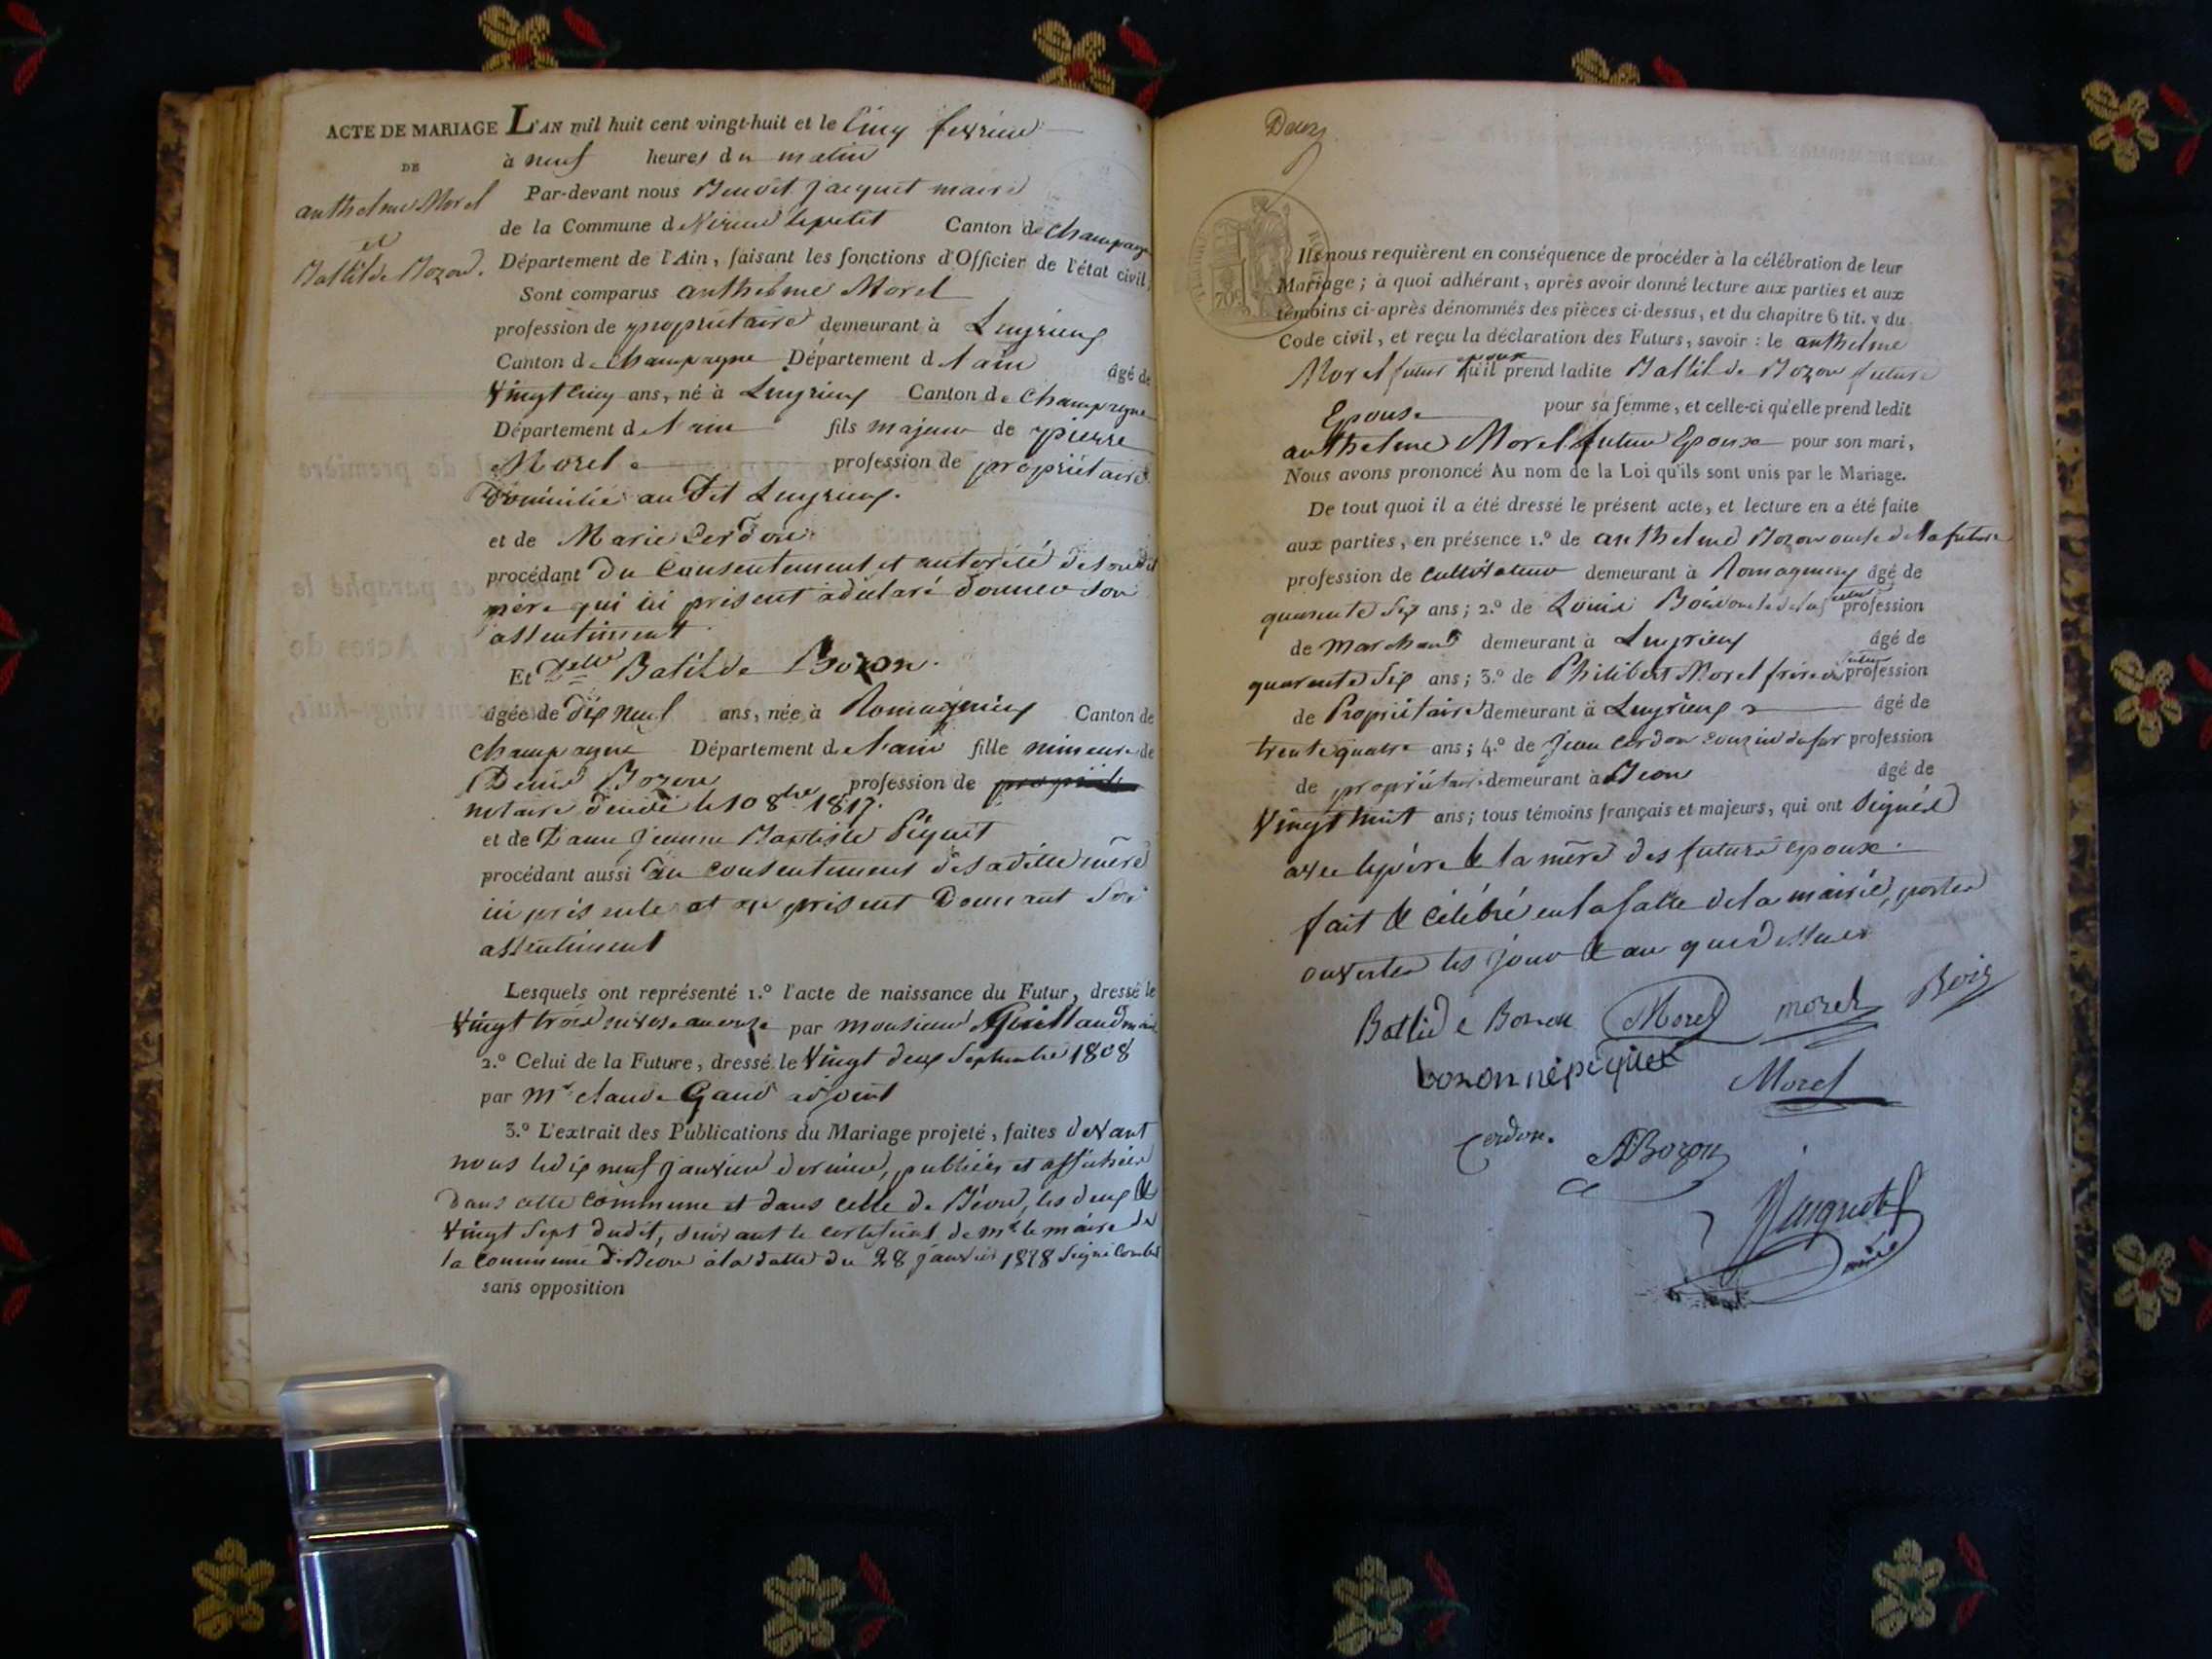 ACTE DE MARIAGE
DE
anthelme Morel
et
Batilde Bozon.
L'AN mil huit cent vingt-huit et le Cinq fevrier
à neuf heures du matin
Par-devant nous Benoit Jacquet maire
de la Commune de Virieu le petit Canton de Champagne
Département de l'Ain, faisant les fonctions d'Officier de l'état civil,
Sont comparus anthelme Morel
profession de propriétaire demeurant à Luyrieux
Canton de Champagne Département de l'ain âgé de
Vingt Cinq ans, né à Luyrieux Canton de Champagne
Département de l'ain fils majeur de pierre
Morel profession de propriétaire
Domicilié au dit Luyrieux.
et de Marie Cerdon
procédant du Consentement et autorité de son dit
père qui ici présent a déclaré donner son
assentiment.
Et Delle Batilde Bozon.
âgée de dix neuf ans, née à Romagnieux Canton de
Champagne Département de l'ain fille mineure de
Denis Bozon profession de
notaire décédé le 10 8bre 1817.
et de Dame Jeanne Baptiste Péquet
procédant aussi du consentement de sa dite mère
ici présente et présent Donnant son
assentiment
Lesquels ont représenté 1.º l'acte de naissance du Futur, dressé le
Vingt trois nivose an onze par monsieur Guillaud maire
2.º Celui de la Future, dressé le Vingt deux Septembre 1808
par Mr claude Gaud adjoint
3.º L'extrait des Publications du Mariage projeté, faites devant
nous le dix neuf janvier dernier, publiées et affichées
dans cette Commune et dans celle de Béon, les deux &
Vingt Sept dudit, suivant le certificat de mr le maire de
la Commune de Béon à la datte du 28 janvier 1828 signé
sans opposition
Ils nous requièrent en conséquence de procéder à la célébration de leur
Mariage; à quoi adhérant, après avoir donné lecture aux parties et aux
témoins ci-après dénommés des pièces ci-dessus, et du chapitre 6 tit. v du
Code civil, et reçu la déclaration des Futurs, savoir : le anthelme
Morel futur Epoux qu'il prend ladite Batilde Bozon future
Epouse pour sa femme, et celle-ci qu'elle prend ledit
anthelme Morel futur Epoux pour son mari,
Nous avons prononcé Au nom de la Loi qu'ils sont unis par le Mariage.
De tout quoi il a été dressé le présent acte, et lecture en a été faite
aux parties, en présence 1.º de anthelme Bozon oncle de la future
profession de Cultivateur demeurant à Romagnieux âgé de
quarente Six ans; 2.º de Louis Bois oncle du futur profession
de marchand demeurant à Luyrieux âgé de
quarente Six ans; 3.º de Philibert Morel frère du futur profession
de Propriétaire demeurant à Luyrieux âgé de
trente quatre ans; 4.º de Jean Cerdon Couzin du fur profession
de propriétaire demeurant à Béon âgé de
Vingt huit ans; tous témoins français et majeurs, qui ont Signés
avec le père & la mère des futurs époux.
fait & célébré en la salle de la mairie, portes
ouvertes les jour & an que dessus
Batilde Bozon Morel morel Bois
bozon né péquet Morel
Cerdon. ABozon
Jacquet
maire